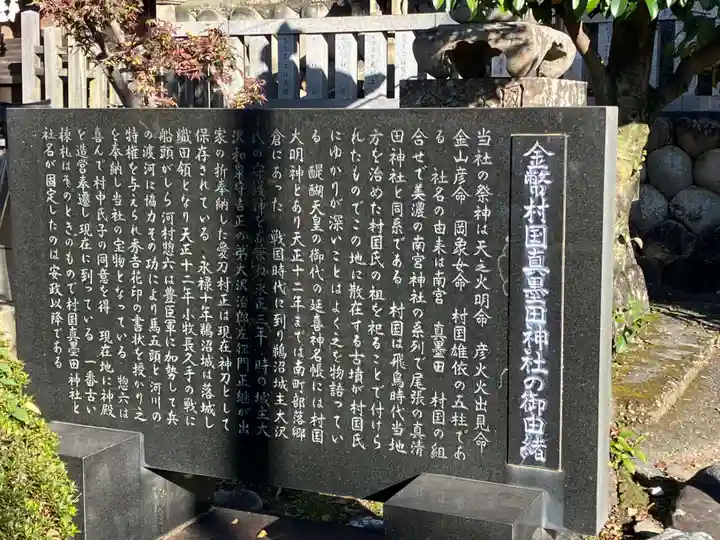 金幣村国真墨田神社の御由緒
当社の祭神は天之火明命 彦火火出見命
金山彦命 岡象女命 村国雄依の五柱であ
る 社名の由来は南宮 真墨田 村国の組
合せで美濃の南宮神社の系列で尾張の真清
田神社と同系である 村国は飛鳥時代当地
方を治めた村国氏の祖を祀ることで付けら
れたものでこの地に散在する古墳が村国氏
にゆかりが深いことはよく之を物語ってい
る 醍醐天皇の御代の延喜神名帳には村国
大明神とあり天正十二年までは南町部落郷
倉にあった 戦国時代に到り鵜沼城主大沢
氏の守護神を 永正三年 時の城主大
沢和泉守吉正の弟大沢治郎左衛門正継が出
家の折奉納した愛刀村正は現在神刀として
保存されている 永禄十年鵜沼城は落城し
織田領となり天正十二年小牧長久手の戦に
船頭がしら河村惣六は豊臣軍に加勢して兵
の渡河に協力その功により馬五頭と河川の
特権を与えられ秀吉花印の書状を授かり之
を奉納し当社の宝物となっている 惣六は
喜んで村中氏子の同意を得 現在地に神殿
を造営奉遷し現在に到っている 一番古い
棟札はそのときのもので村国真墨田神社と
社名が固定したのは安政以降である